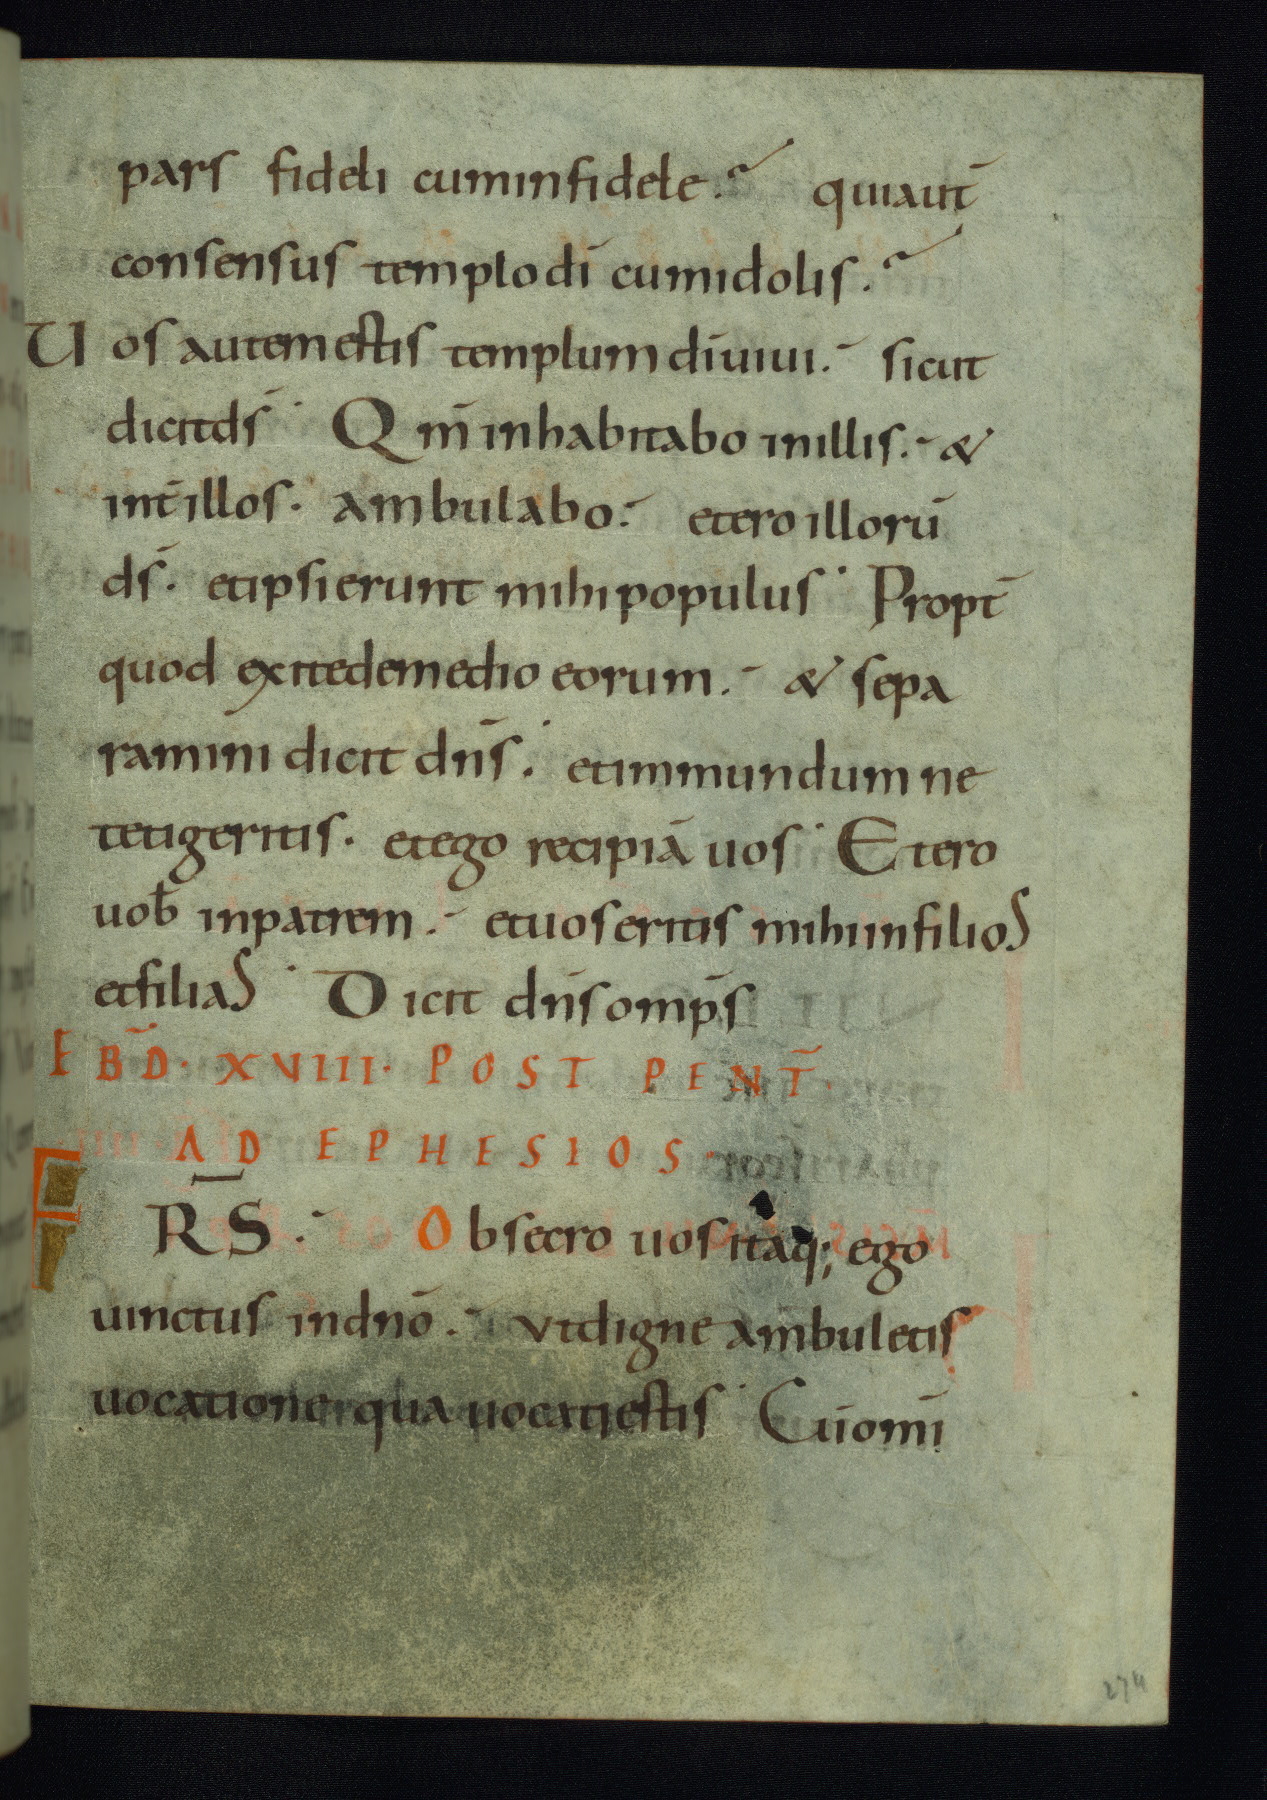 pars fideli cuminfidele. quiaut̄
consensus templodī cumidolis.
Uos autemestis templumdīuiui. sicut
dicitds̄ Qm̄ inhabitabo inillis. &
int̄illos. ambulabo. etero illorū
ds̄. etipsierunt mihipopulus Propt̄
quod exitedemedio eorum. & sepa
ramini dicit dn̄s. etimmundum ne
tetigeritis. etego recipiā uos Etero
uob̄ inpatrem. etuoseritis mihiinfilios
etfilias Dicit dn̄somp̄s
EBD̄. XVIII. POST PENT̄.
AD EPHESIOS.
FR̄S. Obsecro uositaq; ego
uinctus indnō. utdigne ambuletis
uocatione qua uocatiestis Cūomī
274